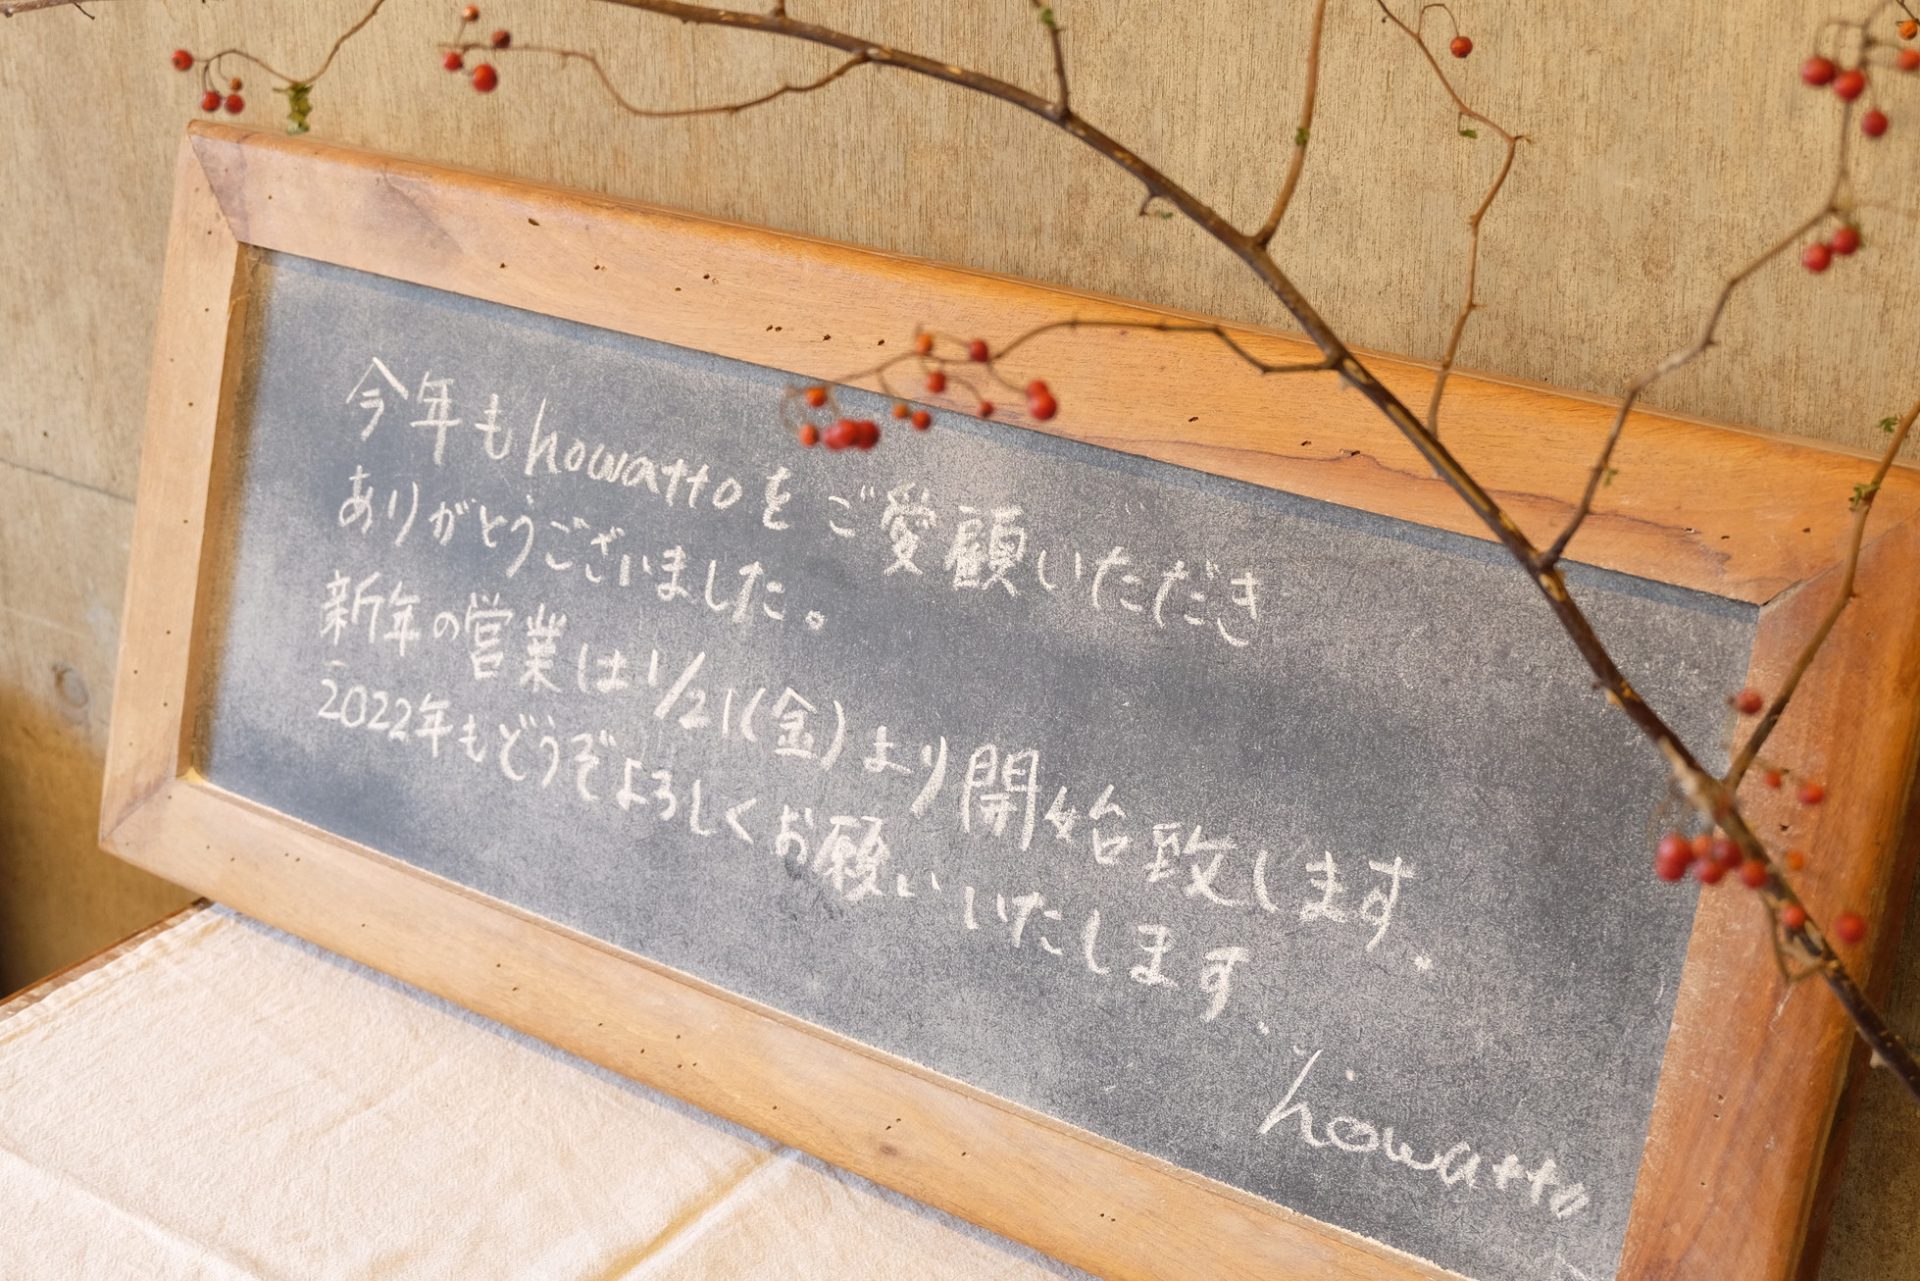 今年もhowattoをご愛顧いただき
ありがとうございました。
新年の営業は1/21(金)より開始致します。
2022年もどうぞよろしくお願いいたします。
howatto